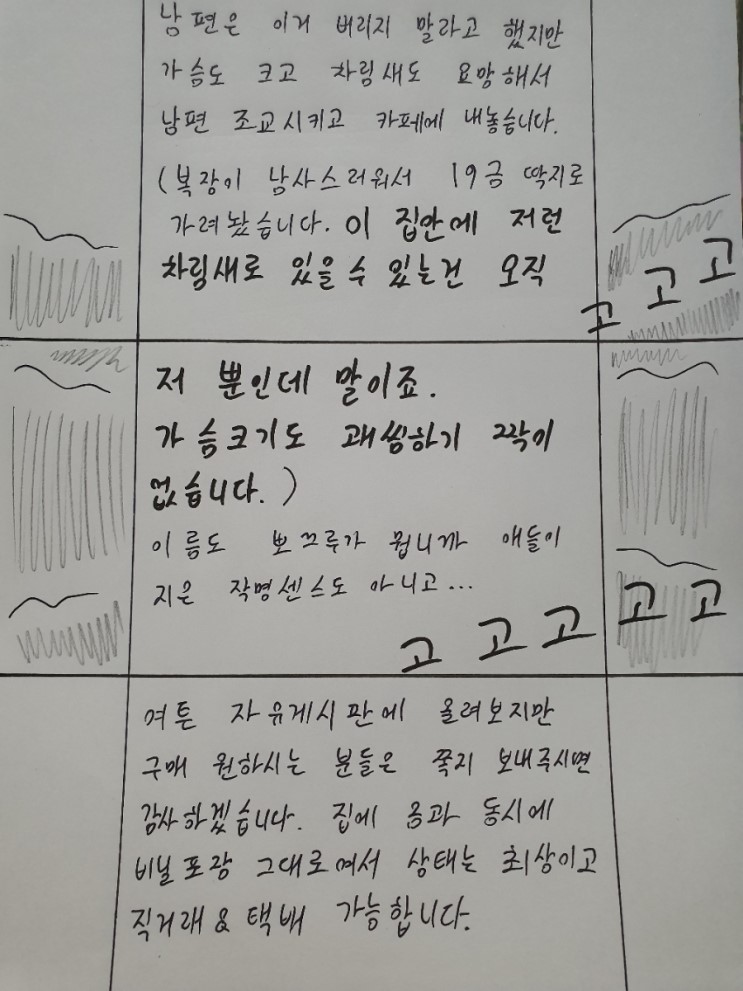 남편은 이거 버리지 말라고 했지만
가슴도 크고 차림새도 요망해서
남편 조교시키고 카페에 내놓습니다.
(복장이 남사스러워서 19금 딱지로
가려놨습니다. 이 집안에 저런
차림새로 있을 수 있는건 오직
고 고 고
저 뿐인데 말이죠.
가슴크기도 괘씸하기 짝이
없습니다.)
이름도 뽀끄루가 뭡니까 애들이
지은 작명센스도 아니고...
고 고 고 고 고
여튼 자유게시판에 올려보지만
구매 원하시는 분들은 쪽지 보내주시면
감사하겠습니다. 집에 옴과 동시에
비닐포장 그대로여서 상태는 최상이고
직거래 & 택배 가능합니다.